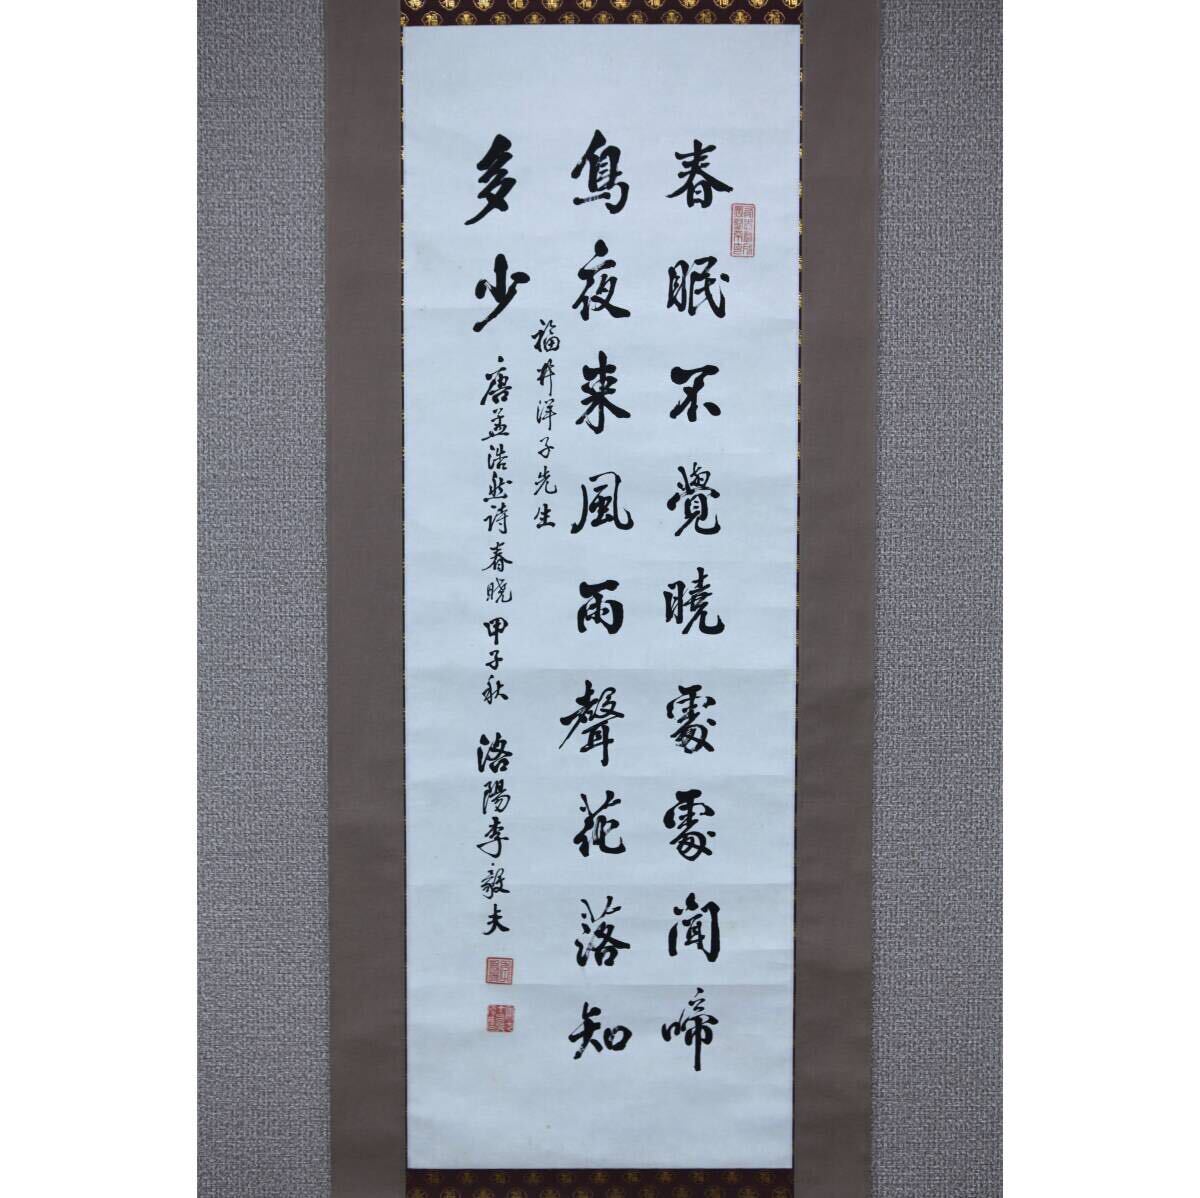 春眠不覺曉處處聞啼
鳥夜来風雨聲花落知
多少
福井洋子先生
唐孟浩然诗春晓甲子秋
洛陽李毅夫